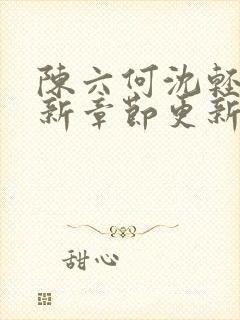 陳六何沈輕
新章節更新
甜心